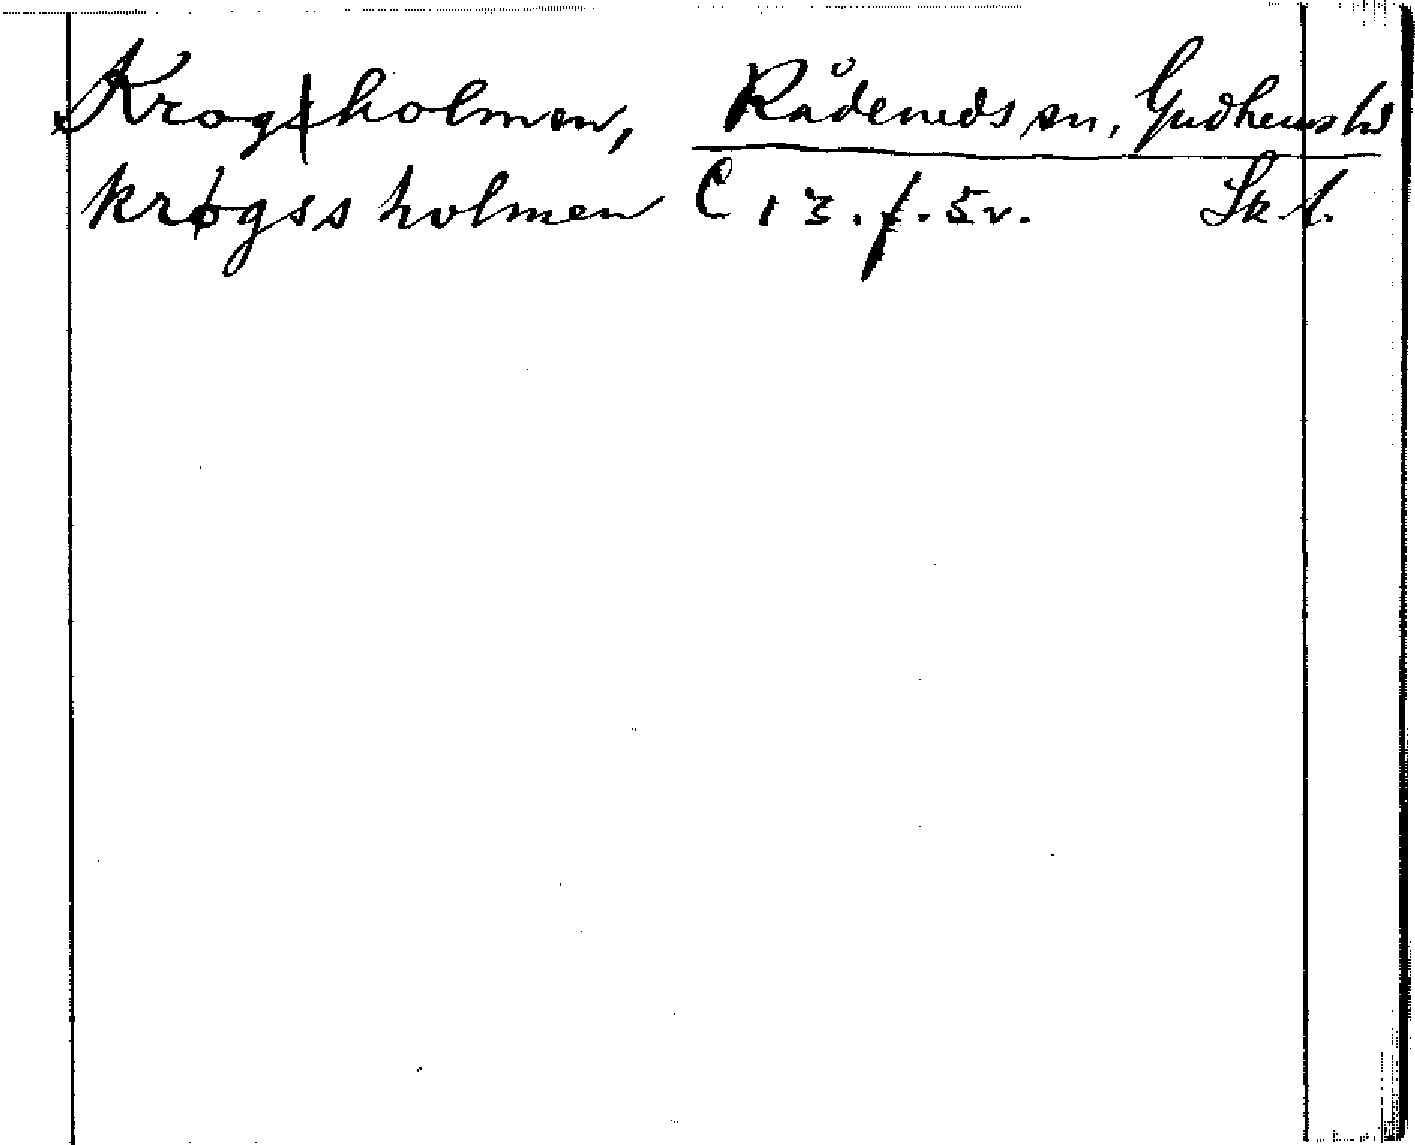 × Krogsholmen, Rådeneds sn, Gudhems hd
krøgss holmen C 13. f. 5v. Sk l.